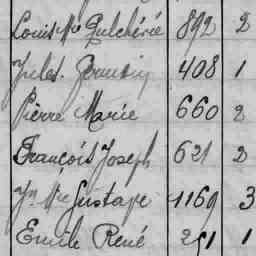 Louis Mie Pulchérie 892 2
Jules Germain 408 1
Pierre Marie 660 2
François Joseph 621 2
Jn Mie Gustave 1160 3
Emile René 251 1